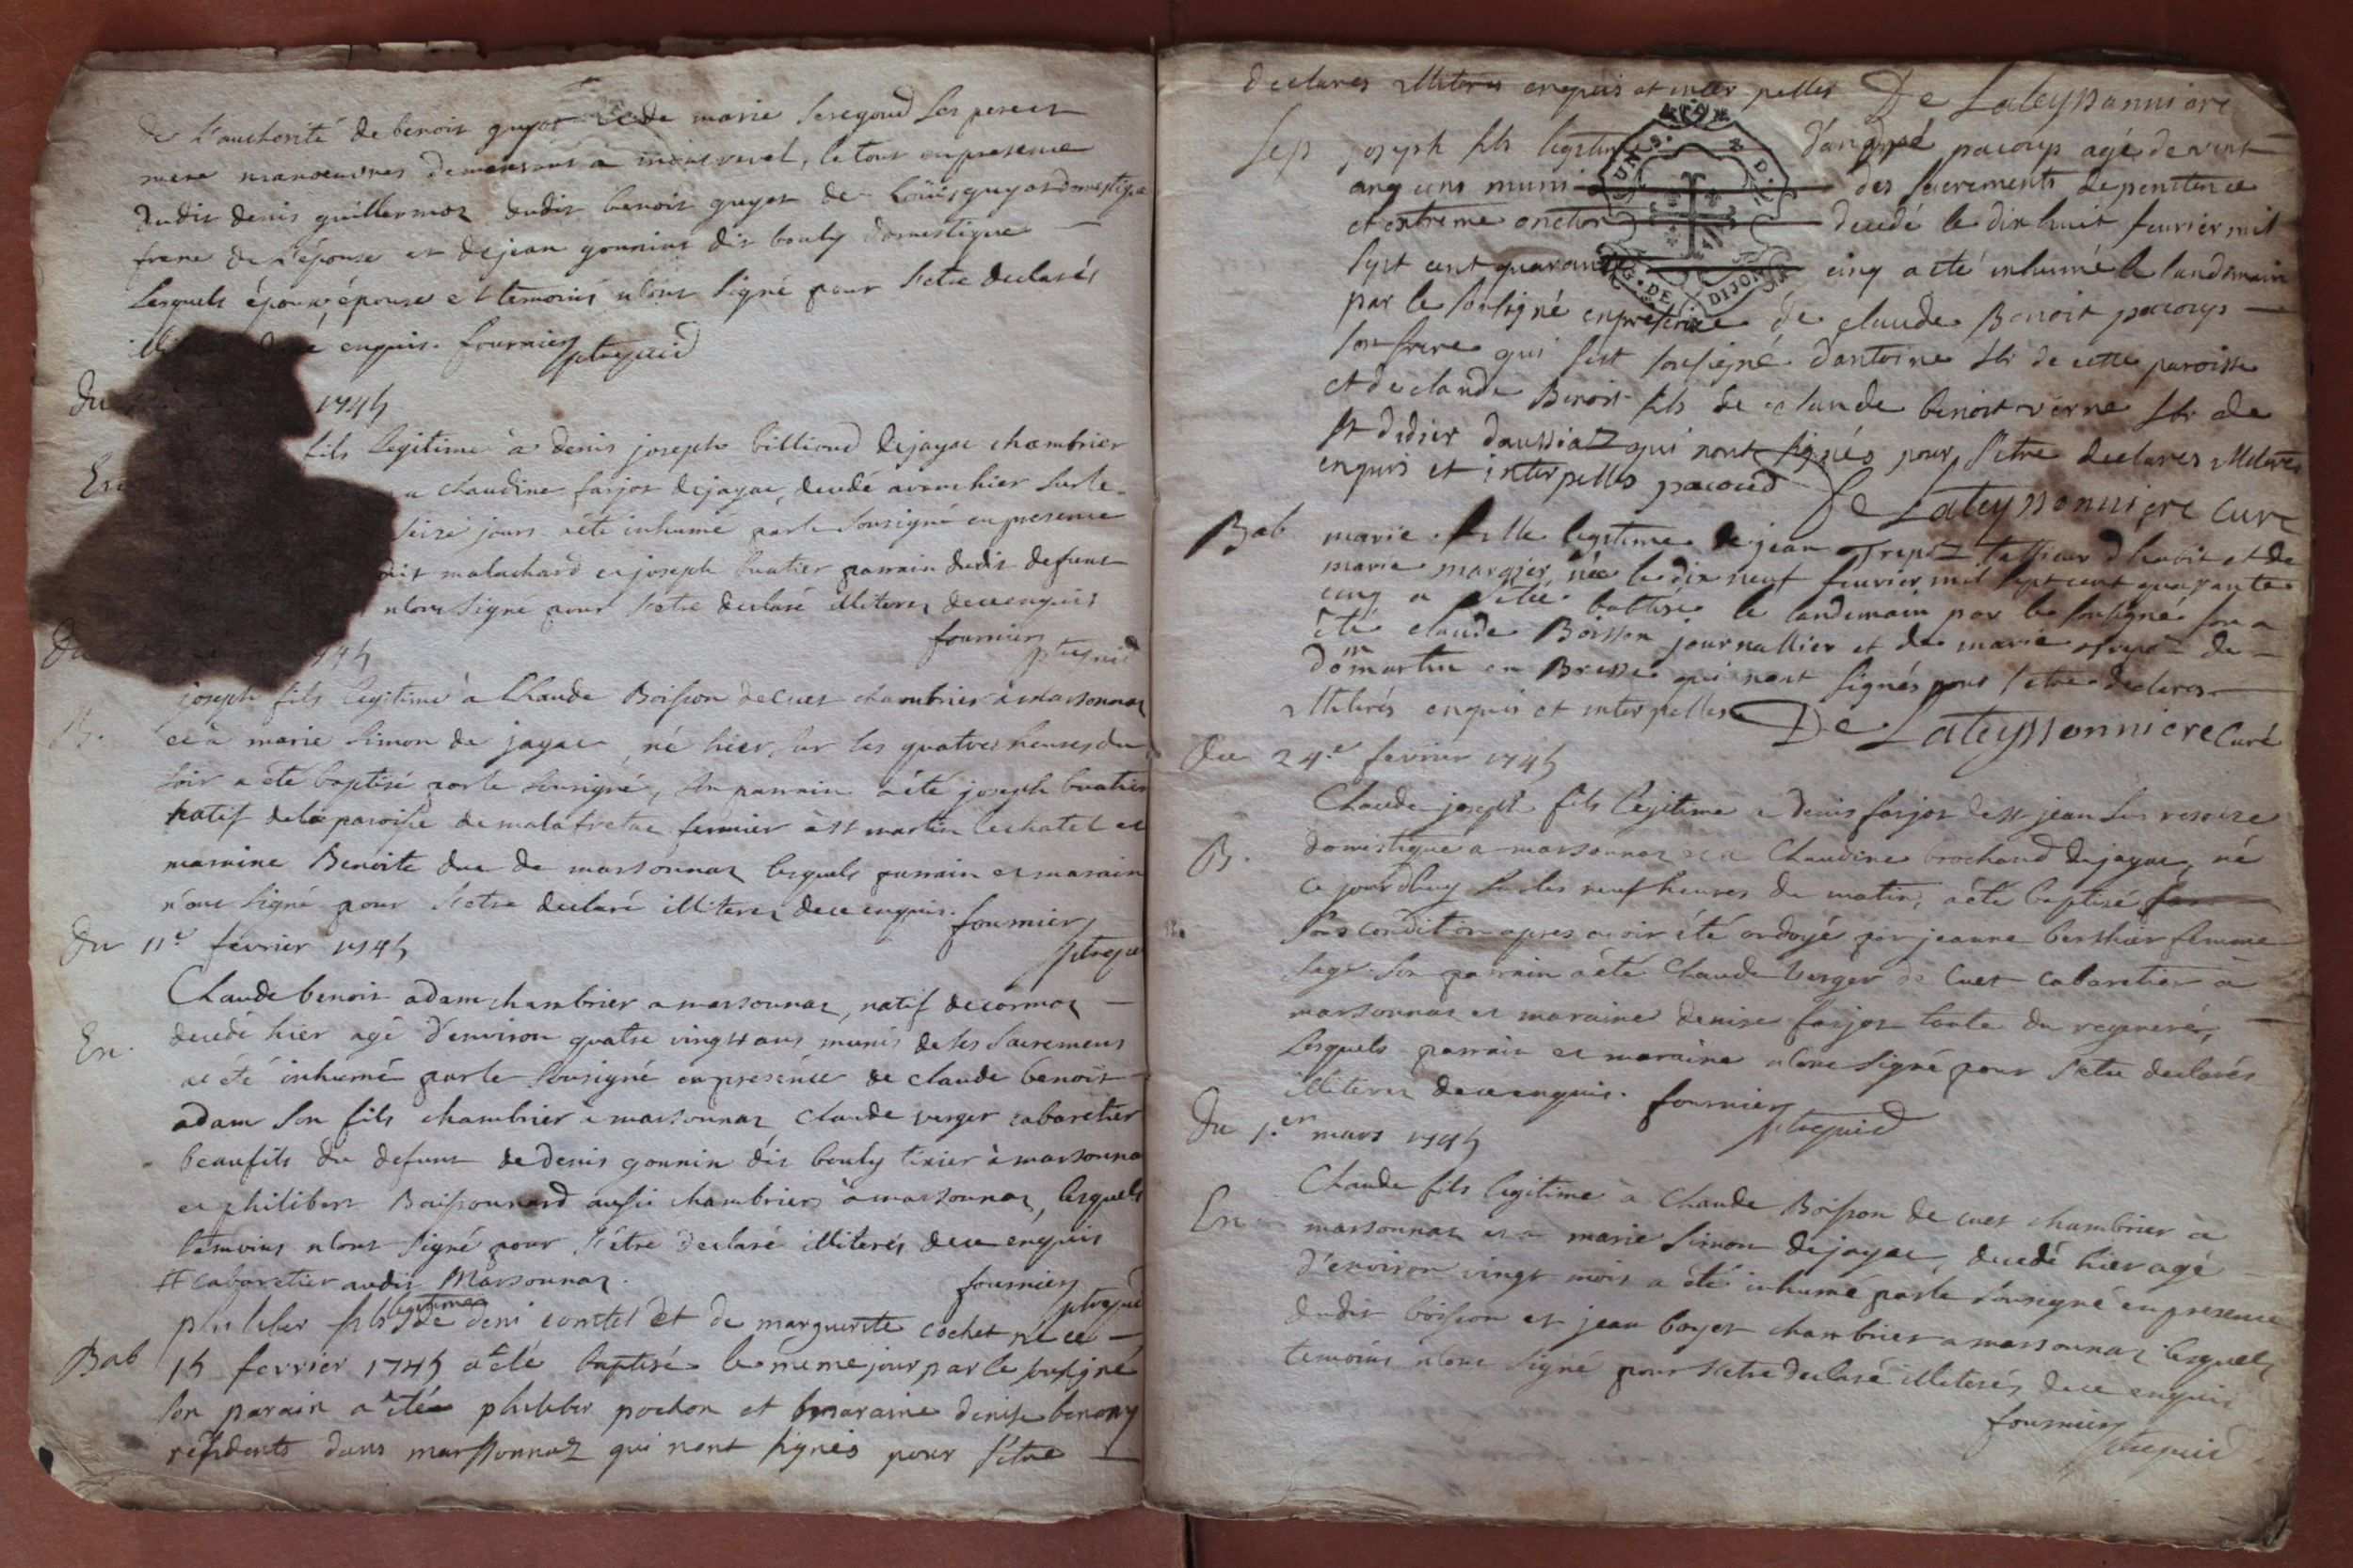 de l'authorité de benoit guyot et de marie seregoud ses perees
mere manoeuvres demeurant a montrevel, le tout en presence
dudit denis guillermoz dudit benoit guyot de Louis guyot domestique
frere de l'épouse et de jean gonnins dit bouly domestique
Lesquels époux, épouse et temoins n'ont signé pour s'etre declarés
enquis. fournier
Du 1745
fils legitime à denis joseph billioud de jayac chambrier
a Claudine farjot de jayac, decedé avant hier sur le
seize jours a été inhumé par le sousigné en presence
malachard et joseph buatier parrain dudit defunt
n'ont signé pour s'etre declaré illiteres de ce enquis
fournier
joseph fils legitime à Claude Boisson de Cuet chambrier à marsonnaz
B. et à marie simon de jayac, né hier sur les quatres heures du
soir a été baptisé par le sousigné, son parrain a été joseph buatier
natif de la paroisse de malafretaz fermier à st martin le chatel et
marraine Benoite duc de marsonnaz lesquels parrain et marain
n'ont signé pour s'etre declaré illiteres de ce enquis. fournier
Du 11e février 1745
Claude benoit adam chambrier a marsonnaz, natif de cormoz
En. decedé hier agé d'environ quatre vingts ans munis de ses sacremens
a été inhumé par le sousigné en presence de claude benoit
adam son fils chambrier à marsonnaz Claude verger cabaretier
beaufils du defunt de denis gonnin dit bouly tixier à marsonna
et philibert Buissonnard aussi chambrier à marsonnaz, lesquels
temoins n'ont signé pour s'etre declaré illiterés de ce enquis
# cabaretier audit Marsonnaz. fournier
legitime
philiber fils de deni comtet et de marguerite cochet né ce
Bab 15 fevrier 1745 a été baptisé le meme jour par le sousigné
son parain a été philiber pochon et maraine denise benony
residents dans marssonnaz qui nont signés pour s'etre
declares illiterés enquis et inter pelles De Lateyssonniere
Sep joseph fils legitime d'andré pacoup agé de vint
cinq ans muni des sacrements de penitence
et extreme onction decedé le dix huit feuvrier mil
sept cent quarante cinq a été inhumé le landemain
par le sousigné en presence de claude Benoit pacoup
son frere qui s'est sousigné dantoine de cette paroisse
et de claude Benoit fils de claude benoit verne de
st didier daussiaz qui nont signés pour s'etre declares illiteres
enquis et interpelles pacoud De Lateyssonniere Curé
Bab marie fille legitime de jean trepoz tallieur dhabit et de
marie margier, née le dix neuf feuvrier mil sept cent quarante
cinq a été battisée le landemain par le sousigné son a
été claude Boisson journallier et de marie de
domartin en Bresse qui nont signés pour s'etre declares
illiterés enquis et interpelles De Lateyssonniere Curé
Du 24e fevrier 1745
Claude joseph fils legitime a denis farjot de st jean sur ressouze
B. domestique a marsonnaz et a Claudine brochand de jayac, né
ce jourd'huy sur les neuf heures du matin, a été baptisé
sous condition apres avoir été ondoyé par jeanne berthier femme
sage son parrain a été Claude Verger de Cuet cabaretier a
marsonnaz et maraine denise farjot tante du regeneré,
Lesquels parrain et maraine n'ont signé pour s'etre declarés
illiteres de ce enquis. fournier
Du 1.er mars 1745
Claude fils legitime à Claude Boisson de cuet chambrier à
En marsonnaz et a marie simon de jayac, decedé hier agé
d'environ vingt mois a été inhumé par le sousigné en presence
dudit boisson et jean boyet chambrier a marsonnaz lesquels
temoins n'ont signé pour s'etre declaré illiterés de ce enquis
fournier